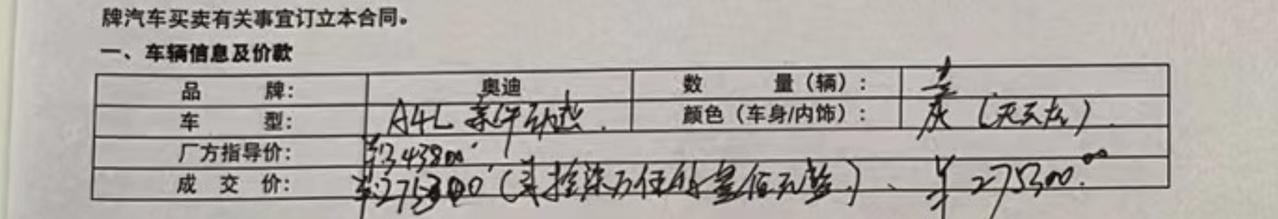 牌汽车买卖有关事宜订立本合同。
一、车辆信息及价款
品 牌： 奥迪 数 量（辆）： 壹
车 型： A4L 颜色（车身/内饰）： 灰
厂方指导价： ¥343800
成 交 价： ¥275300 ¥275300.00